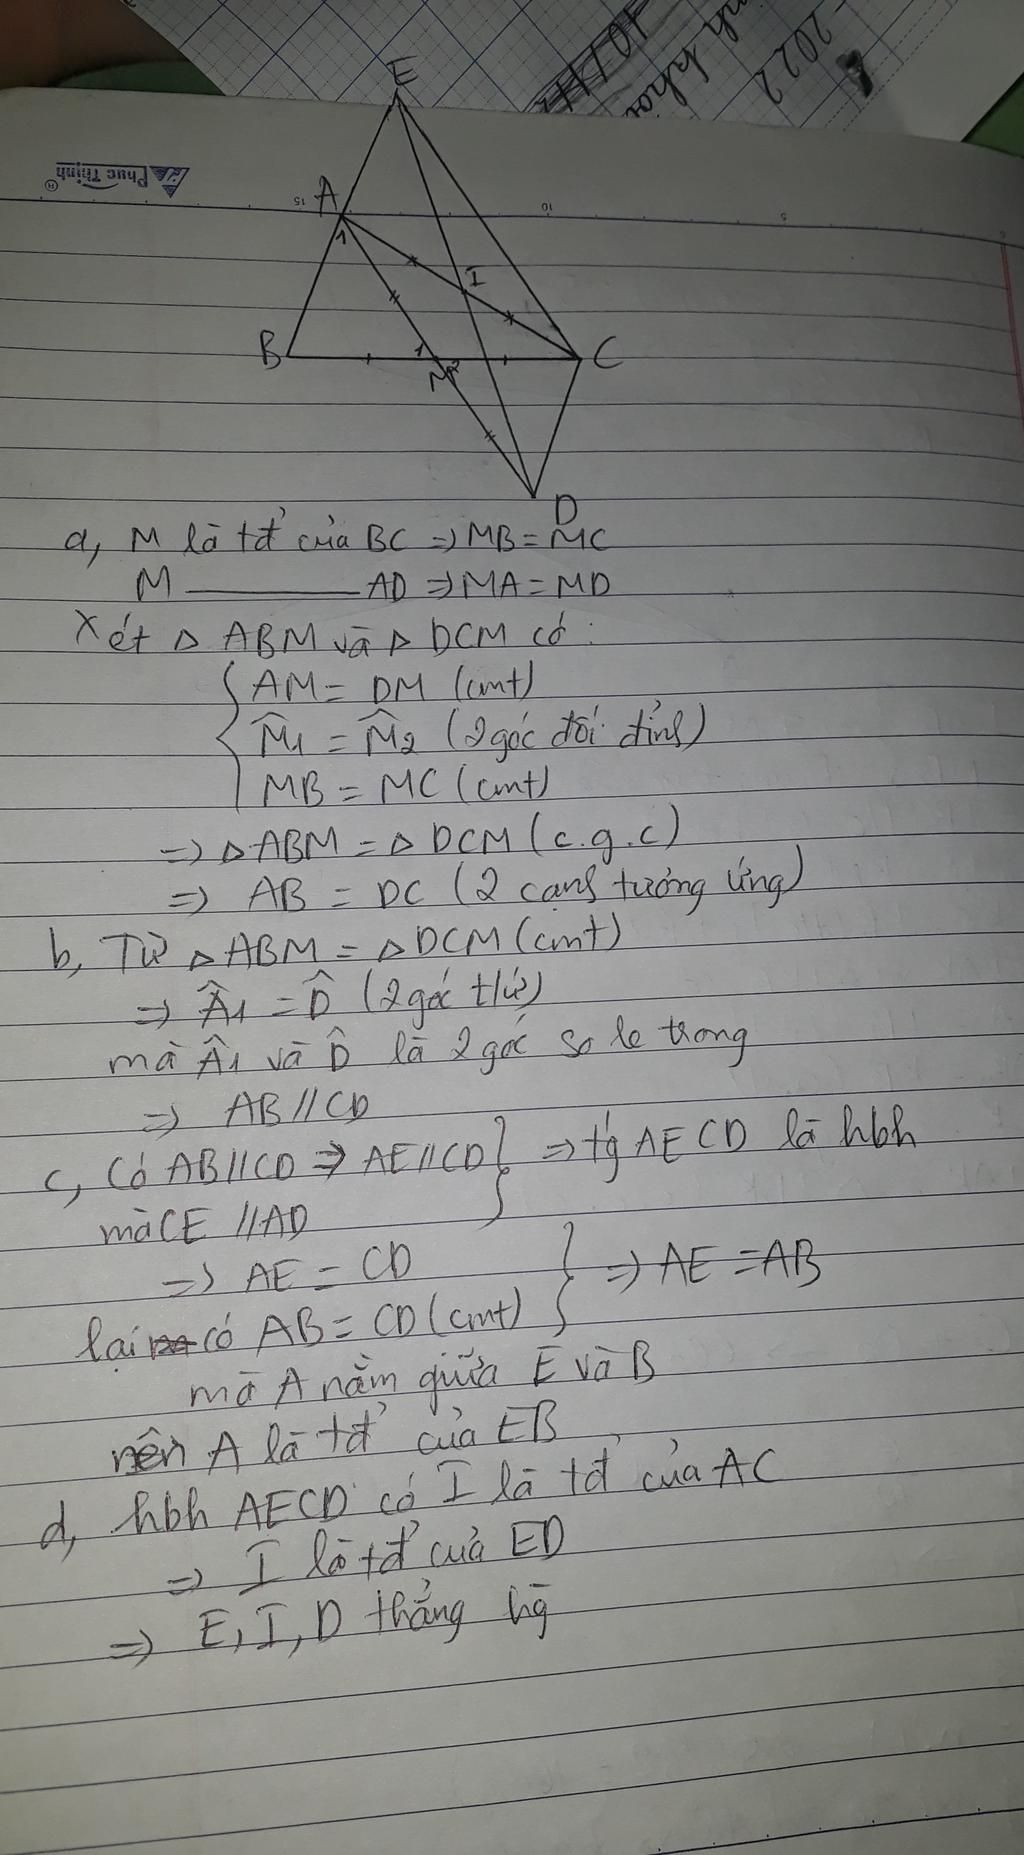 2022
Phúc Thịnh®
15
10
5
E
A
1
I
B
1
M
2
C
D
a, M là tđ' của BC => MB = MC
M ——— AD => MA = MD
Xét △ ABM và △ DCM có :
AM = DM (cmt)
M̂1 = M̂2 (2 góc đối đỉnh)
MB = MC (cmt)
=> △ ABM = △ DCM (c.g.c)
=> AB = DC (2 cạnh tương ứng)
b, Từ △ ABM = △ DCM (cmt)
=> Â1 = D̂ (2 góc t/ứ)
mà Â1 và D̂ là 2 góc so le trong
=> AB // CD
c, Có AB // CD => AE // CD } => tg AECD là hbh
mà CE // AD
=> AE = CD } => AE = AB
lại có AB = CD (cmt)
mà A nằm giữa E và B
nên A là tđ' của EB
d, hbh AECD có I là tđ' của AC
=> I là tđ' của ED
=> E, I, D thẳng hg